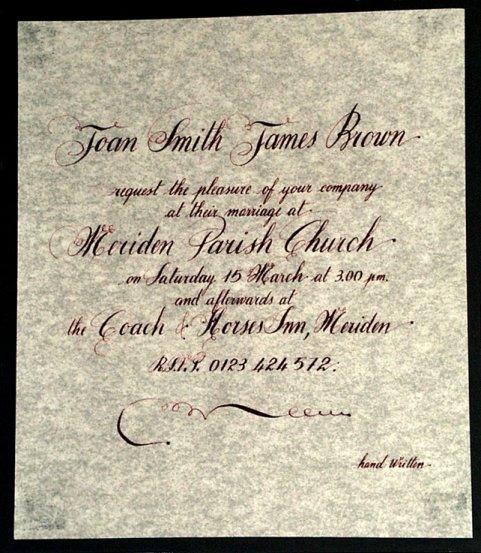 Joan Smith James Brown
request the pleasure of your company
at their marriage at
Meriden Parish Church
on Saturday 15 March at 3.00 pm.
and afterwards at
the Coach & Horses Inn, Meriden
R.S.V.P. 0123 424 572.
hand written